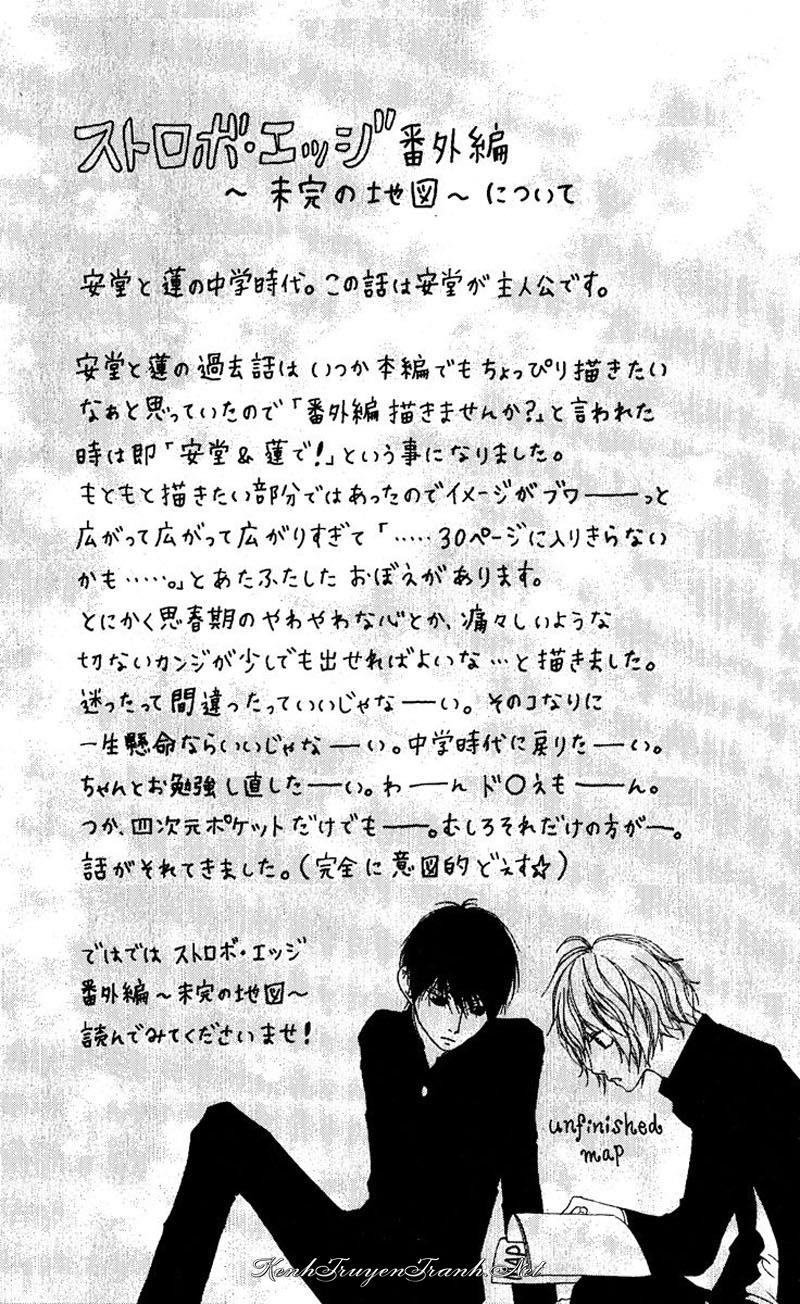 ストロボ・エッジ 番外編
～未完の地図～ について
安堂と蓮の中学時代。この話は安堂が主人公です。
安堂と蓮の過去話は いつか本編でもちょっぴり描きたい
なぁと思っていたので「番外編 描きませんか?」と言われた
時は即「安堂&蓮で!」という事になりました。
もともと描きたい部分ではあったのでイメージがブワーーっと
広がって広がって広がりすぎて「……30ページに入りきらない
かも……。」とあたふたした おぼえがあります。
とにかく思春期のやわやわな心とか、痛々しいような
切ないカンジが少しでも出せればよいな…と描きました。
迷ったって間違ったっていいじゃなーい。そのコなりに
一生懸命ならいいじゃなーい。中学時代に戻りたーい。
ちゃんとお勉強し直したーい。わーん ド〇えもーーん。
つか、四次元ポケットだけでもーー。むしろそれだけの方がー。
話がそれてきました。(完全に意図的どぇす☆)
ではでは ストロボ・エッジ
番外編～未完の地図～
読んでみてくださいませ!
unfinished
map
MAP
KenhTruyenTranh.Net